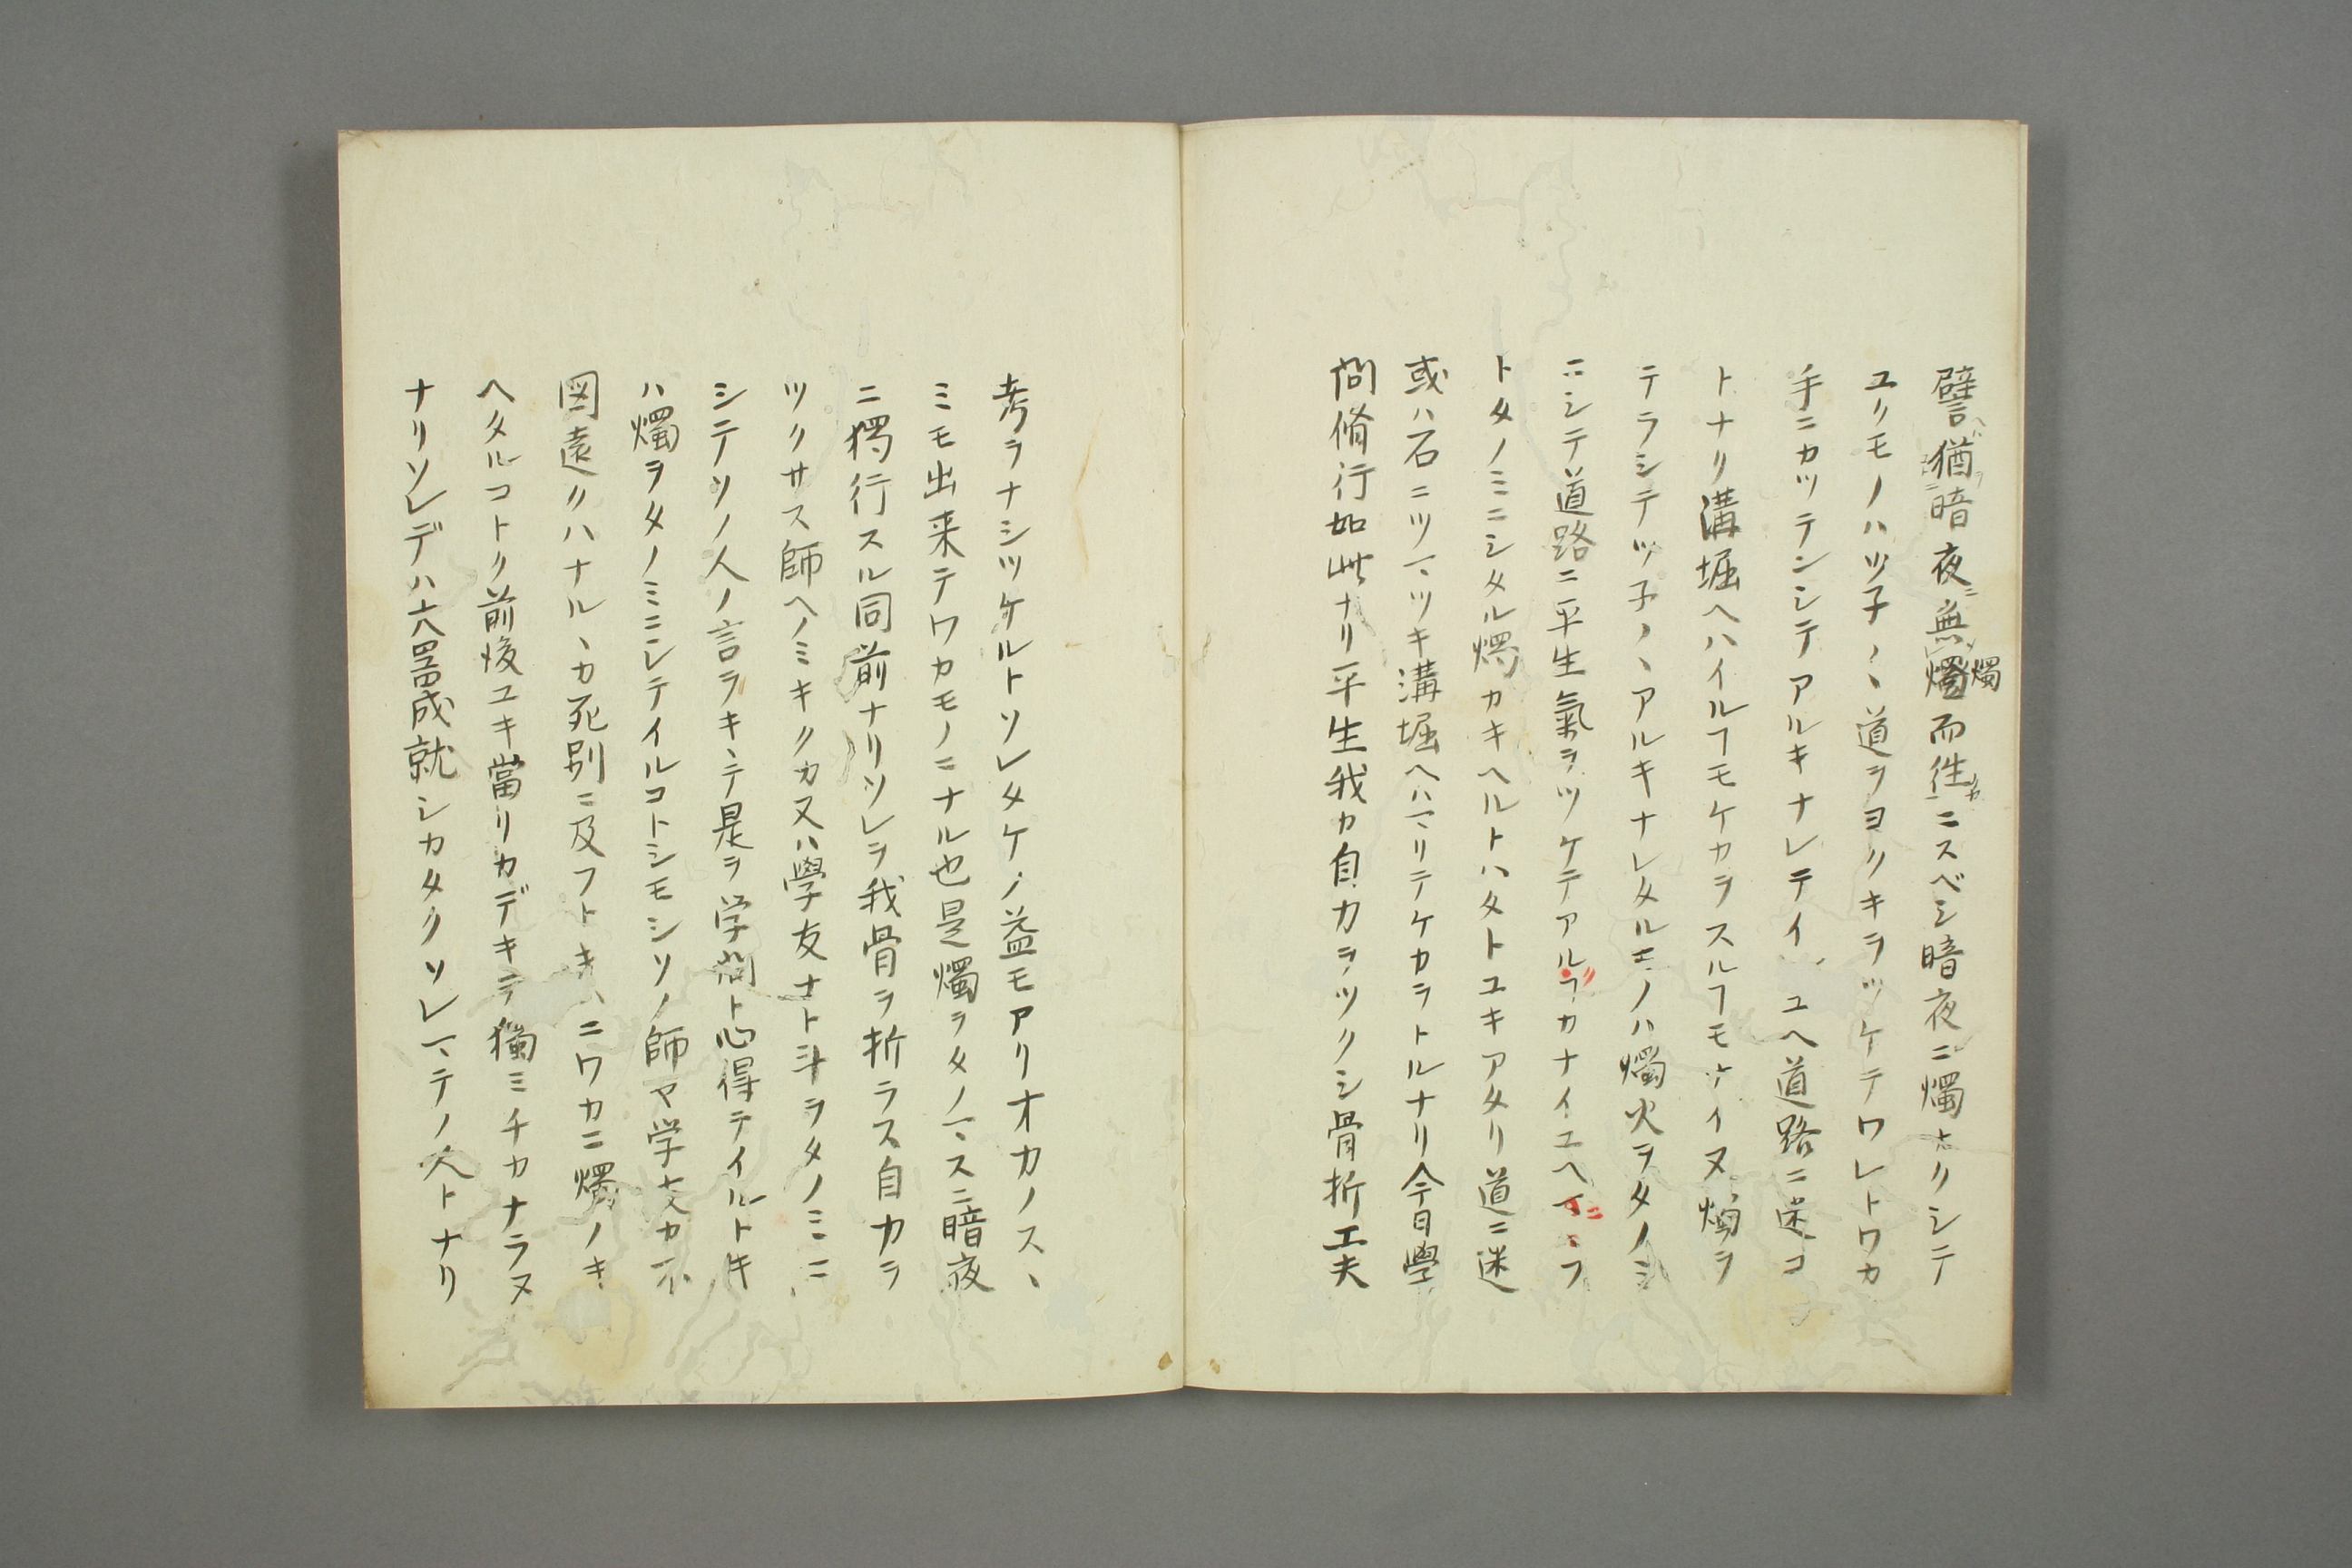 譬ヘハ猶暗夜ニ無燭而徃カニスベシ暗夜ニ燭ナクシテ
ユクモノハツ子〳〵道ヲヨクキヲツケテワレトワカ
手ニカツテンシテアルキナレテイ ユヘ道路ニ迷コ
トナク溝堀ヘハイルヿモケカヲスルヿモナイヌ燭ヲ
テラシテツ子〳〵アルキナレタルモノハ燭火ヲタノミ
ニシテ道路ニ平生氣ヲツケテアルヿカナイユヘマヽフ
トタノミニシタル燭カキヘルトハタトユキアタリ道ニ迷
或ハ石ニツマツキ溝堀ヘハマリテケカヲトルナリ今日學
問脩行如此ナリ平生我カ自力ヲツクシ骨折工夫
考ヲナシツケルトソレタケノ益モアリオカノスヽ
ミモ出来テワカモノニナル也是燭ヲタノマスニ暗夜
ニ獨行スル同前ナリソレヲ我骨ヲ折ラス自力ヲ
ツクサス師ヘノミキクカ又ハ學友ナト斗ヲタノミニ
シテソノ人ノ言ヲキヽテ是ヲ学問ト心得テイルト件
ハ燭ヲタノミニシテイルコトシモシソノ師ヤ学友カ不
図遠クハナルヽカ死別ニ及フトキハニワカニ燭ノキ
ヘタルコトク前後ユキ當リカデキテ獨ミチカナラヌ
ナリソレデハ大器成就シカタクソレマテノ人トナリ